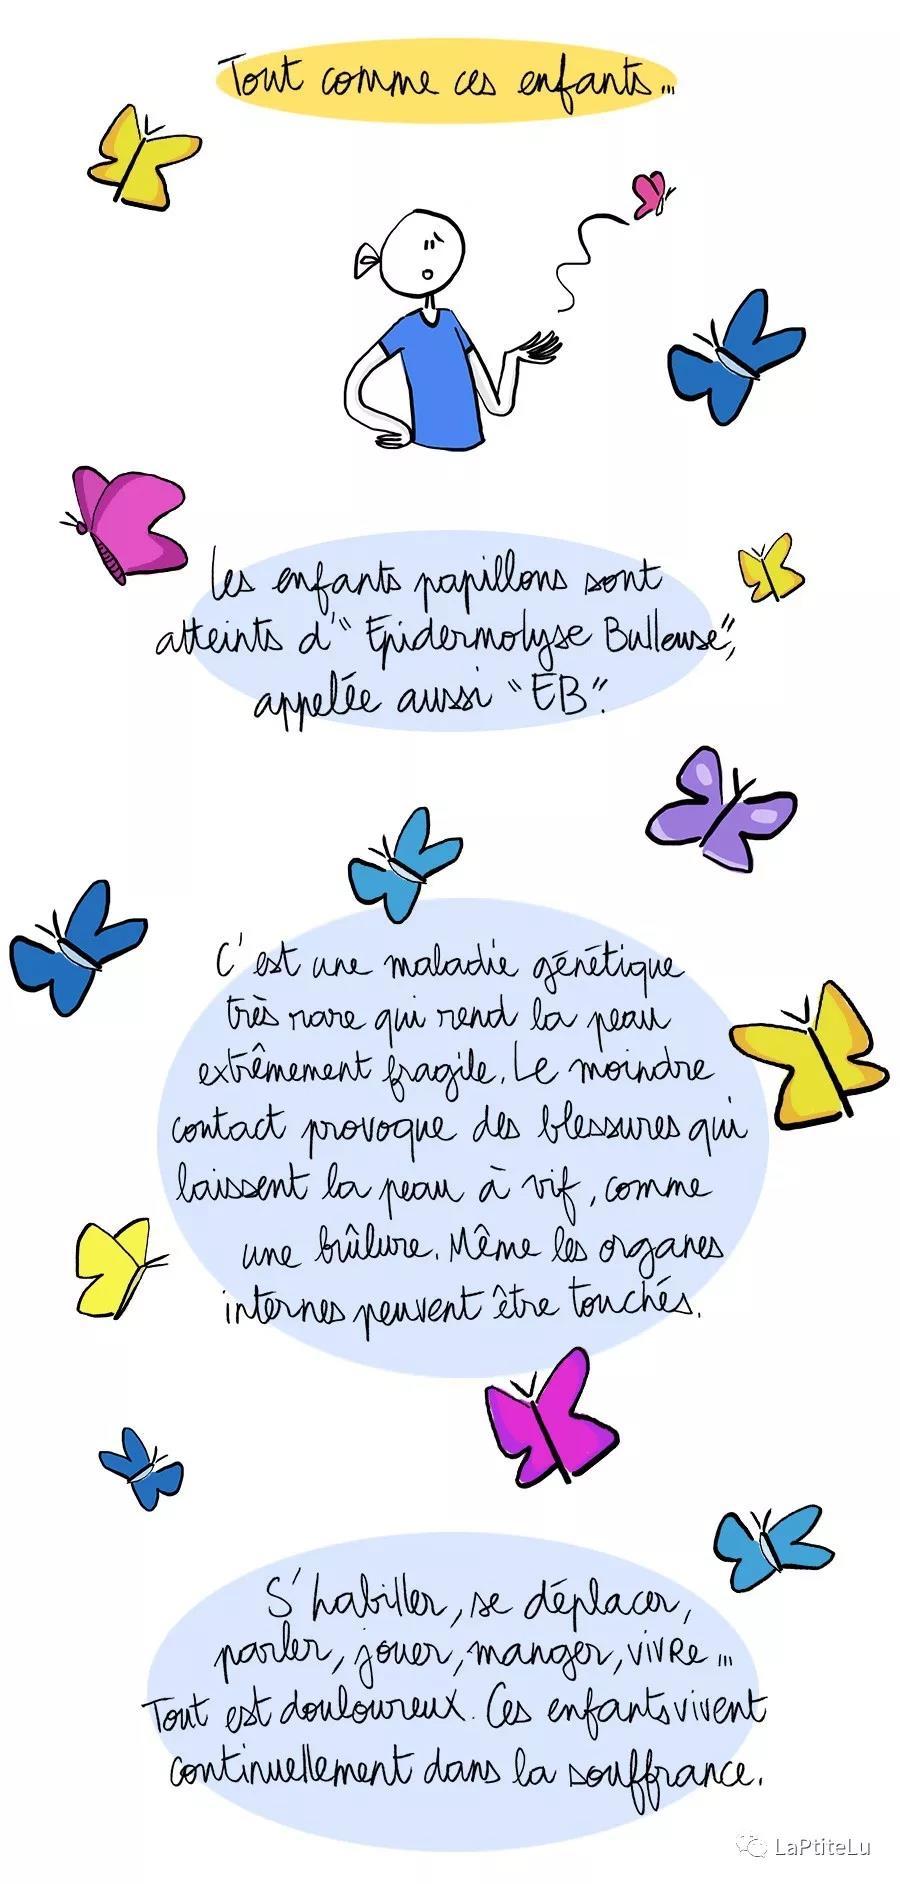 Tout comme ces enfants...
Les enfants papillons sont
atteints d'"Epidermolyse Bulleuse",
appelée aussi "EB".
C'est une maladie génétique
très rare qui rend la peau
extrêmement fragile. Le moindre
contact provoque des blessures qui
laissent la peau à vif, comme
une brûlure. Même les organes
internes peuvent être touchés.
S'habiller, se déplacer,
parler, jouer, manger, vivre...
Tout est douloureux. Ces enfants vivent
continuellement dans la souffrance.
LaPtiteLu